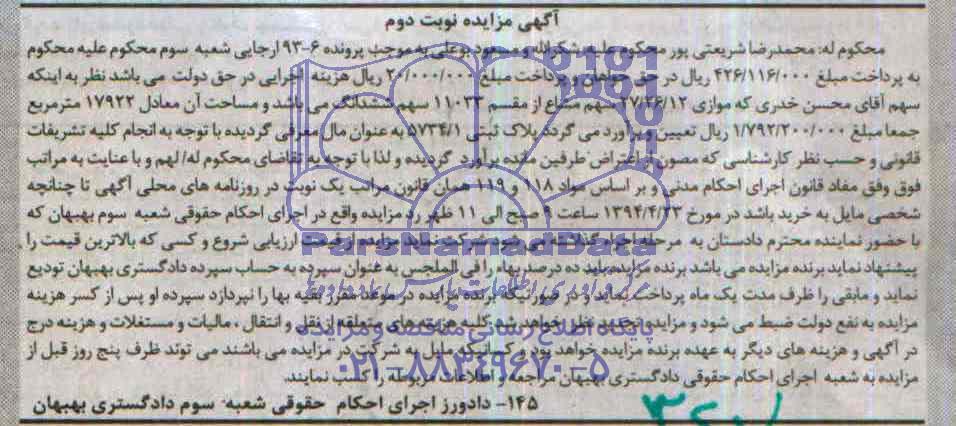 آگهی مزایده نوبت دوم
محکوم له: محمدرضا شریعتی پور محکوم علیه شکرالله و مسعود بوعلی به موجب پرونده ۶-۹۳ ارجایی شعبه سوم محکوم علیه محکوم
به پرداخت مبلغ ۴۲۶/۱۱۶/۰۰۰ ریال در حق خواهان و پرداخت مبلغ ۲۰/۰۰۰/۰۰۰ ریال هزینه اجرایی در حق دولت می باشد نظر به اینکه
سهم آقای محسن خدری که موازی ۲۷/۲۶/۱۲ سهم مشاع از مقسم ۱۱۰۳۳ سهم ششدانگ می باشد و مساحت آن معادل ۱۷۹۲۲ مترمربع
جمعا مبلغ ۱/۷۹۲/۲۰۰/۰۰۰ ریال تعیین و برآورد می گردد پلاک ثبتی ۵۷۳۴/۱ به عنوان مال معرفی گردیده با توجه به انجام کلیه تشریفات
قانونی و حسب نظر کارشناسی که مصون از اعتراض طرفین مانده برآورد گردیده و لذا با توجه به تقاضای محکوم له/ لهم و با عنایت به مراتب
فوق وفق مفاد قانون اجرای احکام مدنی و بر اساس مواد ۱۱۸ و ۱۱۹ همان قانون مراتب یک نوبت در روزنامه های محلی آگهی تا چنانچه
شخصی مایل به خرید باشد در مورخ ۱۳۹۴/۴/۲۳ ساعت ۹ صبح الی ۱۱ ظهر رد مزایده واقع در اجرای احکام حقوقی شعبه سوم بهبهان که
با حضور نماینده محترم دادستان به مرحله اجرا گذاشته می شود شرکت نماید مزایده از قیمت ارزیابی شروع و کسی که بالاترین قیمت را
پیشنهاد نماید برنده مزایده می باشد برنده مزایده باید ده درصد بهاء را فی المجلس به عنوان سپرده به حساب سپرده دادگستری بهبهان تودیع
نماید و مابقی را ظرف مدت یک ماه پرداخت نماید و در صورتیکه برنده مزایده در موعد مقرر بقیه بها را نپردازد سپرده او پس از کسر هزینه
مزایده به نفع دولت ضبط می شود و مزایده تجدید خواهد شد کلیه هزینه های نقل و انتقال ، مالیات و مستغلات و هزینه درج
در آگهی و هزینه های دیگر به عهده برنده مزایده خواهد بود و کسانیکه مایل به شرکت در مزایده می باشند می توند ظرف پنج روز قبل از
مزایده به شعبه اجرای احکام حقوقی دادگستری بهبهان مراجعه و اطلاعات مربوطه را کسب نمایند.
۱۴۵- دادورز اجرای احکام حقوقی شعبه سوم دادگستری بهبهان
ParsNamadData
پایگاه اطلاع رسانی مناقصه و مزایده
۰۲۱-۸۸۳۴۹۶۷۰-۵